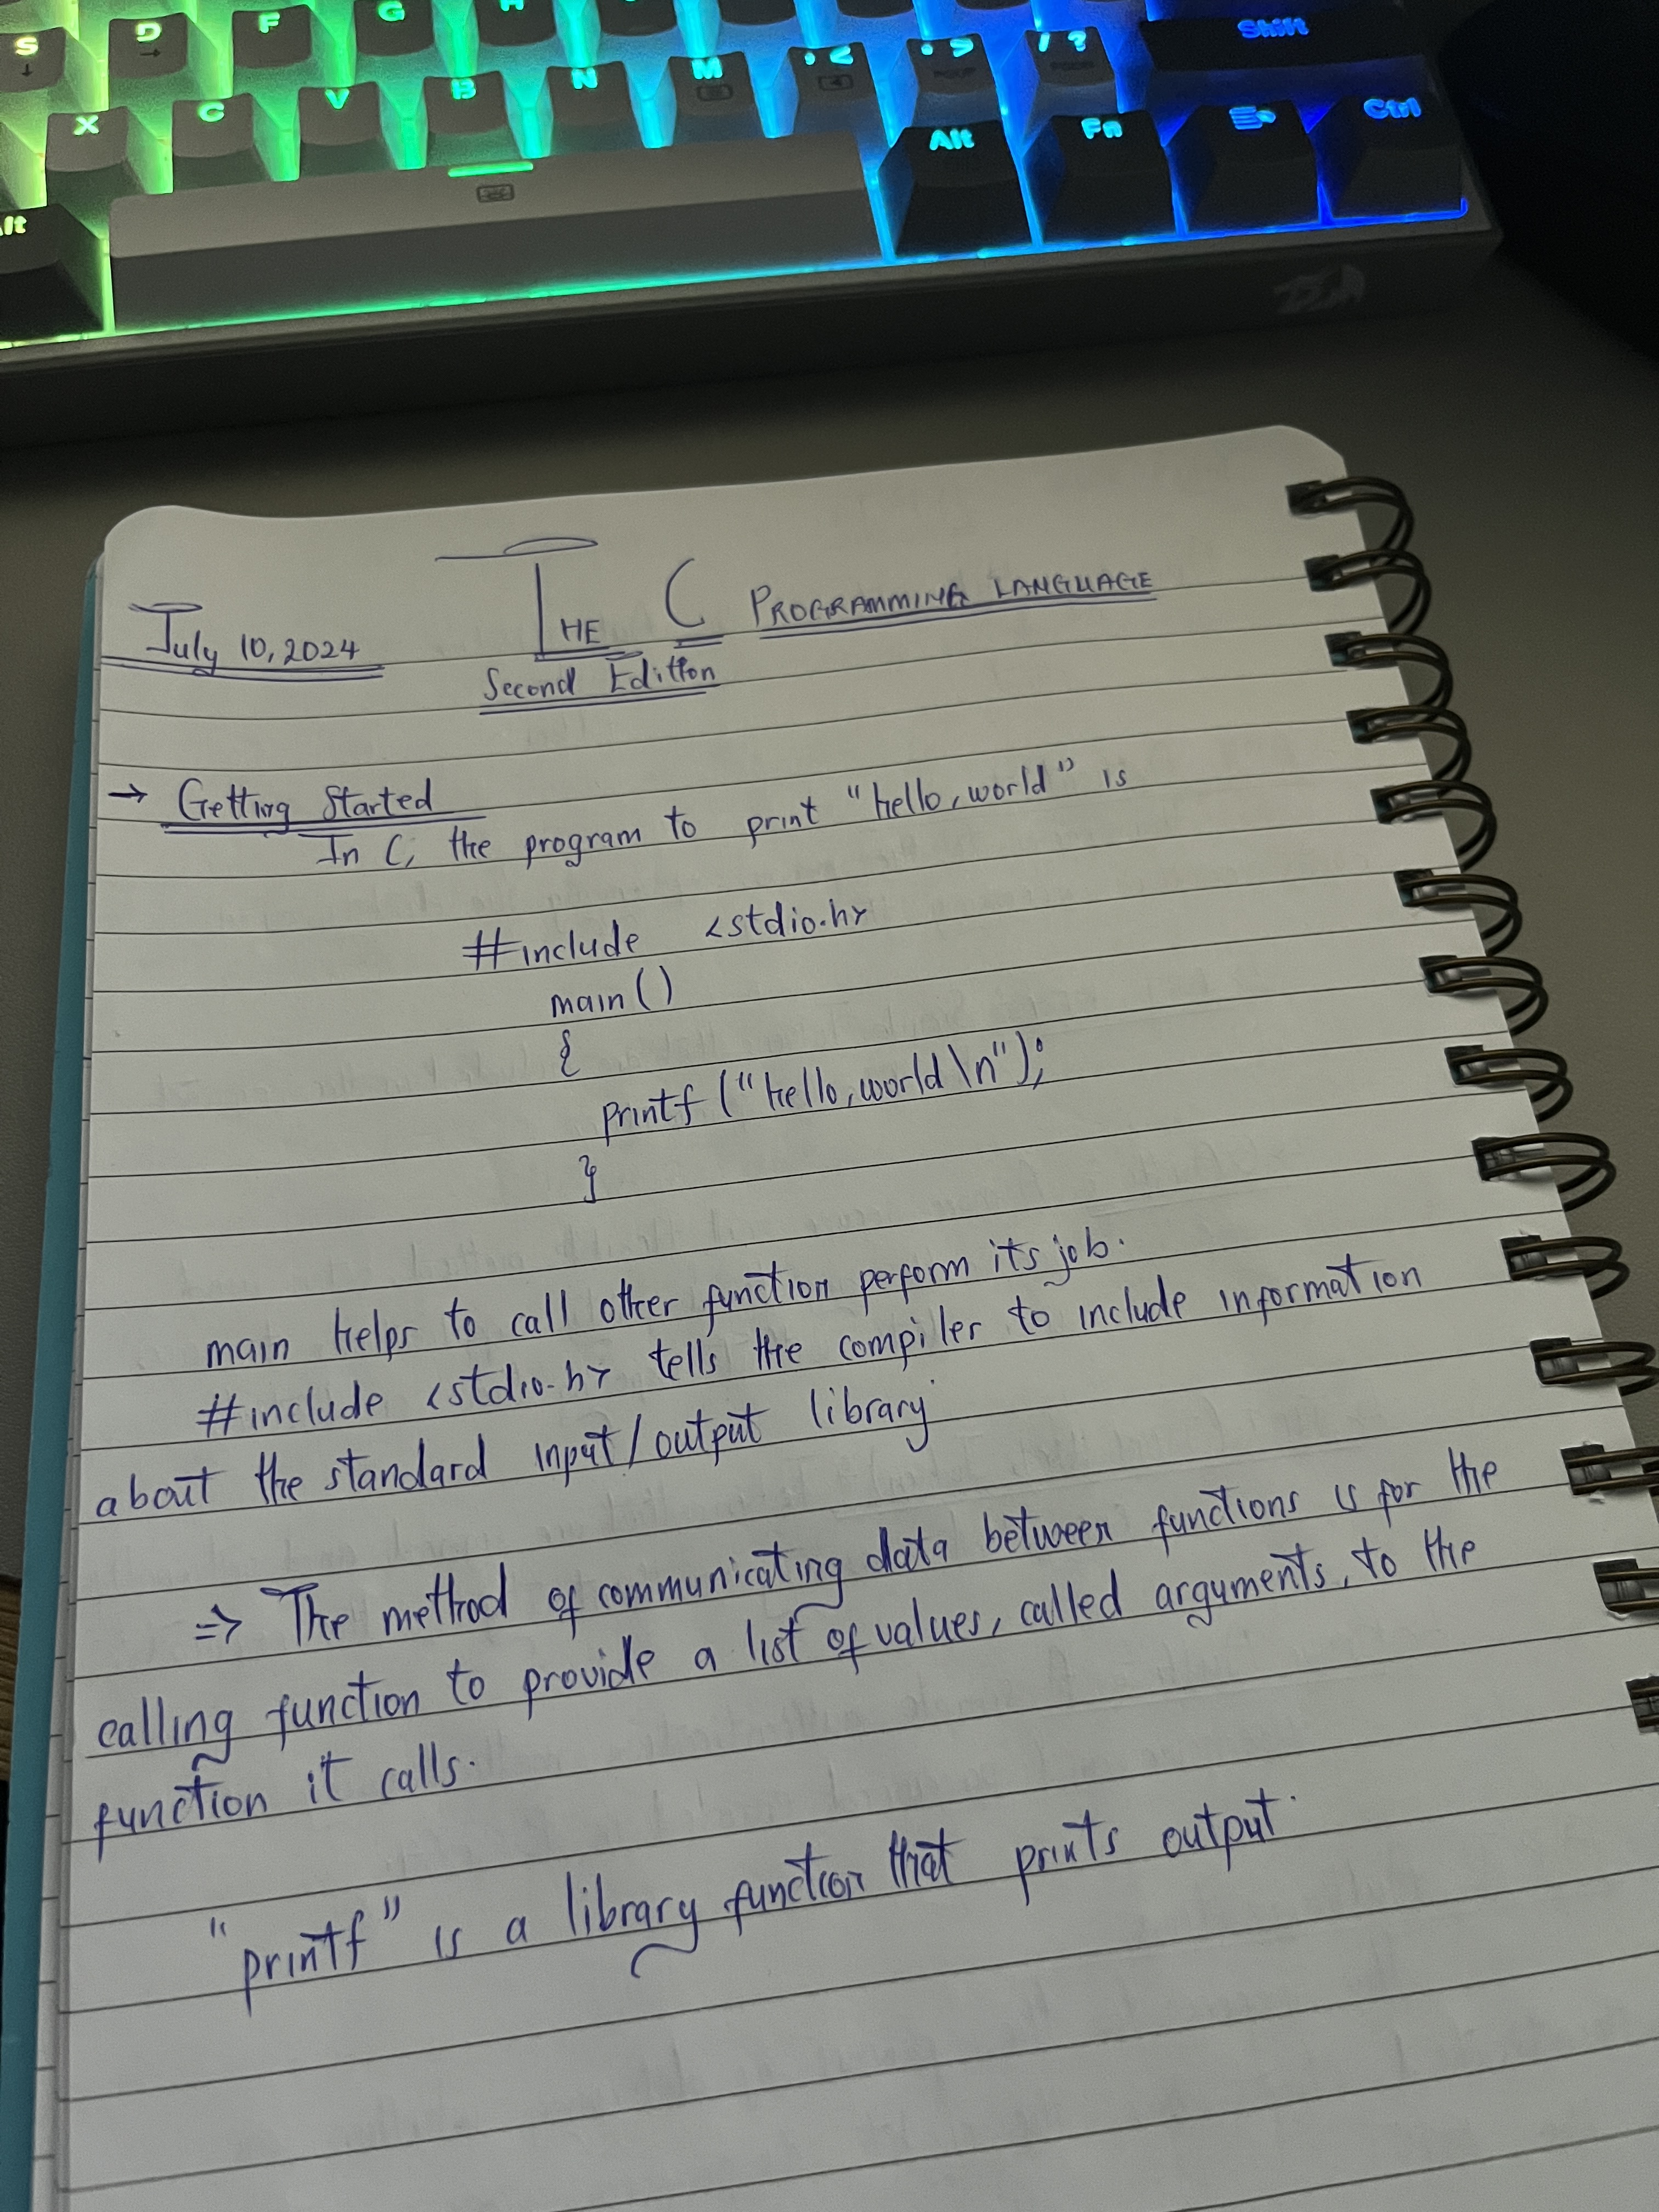 S D F G H
X C V B N M , < . > / ? Shift
Alt Alt Fn Ctrl
July 10, 2024 THE C PROGRAMMING LANGUAGE
Second Edition
→ Getting Started
In C, the program to print "hello, world" is
#include <stdio.h>
main()
{
printf ("hello, world \n");
}
main helps to call other function perform its job.
#include <stdio.h> tells the compiler to include information
about the standard input/output library
=> The method of communicating data between functions is for the
calling function to provide a list of values, called arguments, to the
function it calls.
"printf" is a library function that prints output.